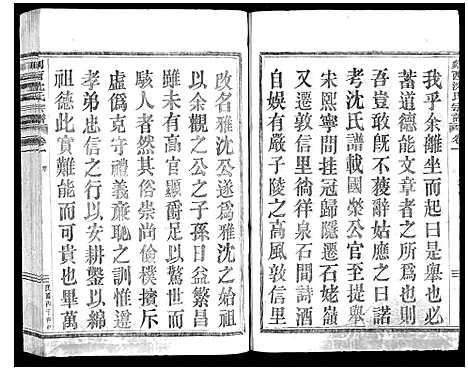 我乎余離坐而起曰是舉也必
蓄道德能文章者之所為也則
吾豈敢既不獲辭姑應之曰諾
考沈氏譜載國榮公官至提舉
宋熙寧間挂冠歸隱遷石姥嶺
又遷敦信里徜徉泉石間詩酒
自娛有嚴子陵之高風敦信里
改名雅沈公遂為雅沈之始祖
以余觀之公之子孫日益繁昌
雖未有高官顯爵足以驚世而
駭人者然其俗崇尚儉樸擯斥
虛偽克守禮義廉恥之訓惟遵
孝弟忠信之行以安耕鑿以綿
祖德此實難能而可貴也畢萬